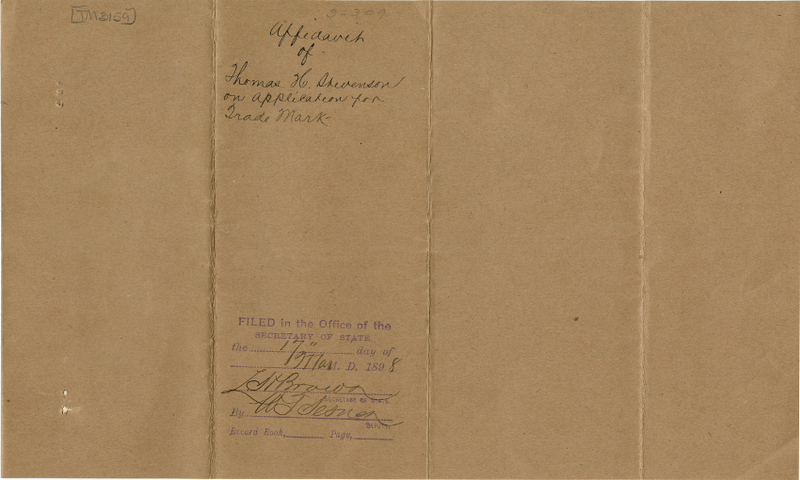 [TM2159]
Affidavit
of
Thomas H. Stevenson
on Application for
Trade Mark
FILED in the Office of the
SECRETARY OF STATE
the 17" day of
May A. D. 1898
L H Brown
SECRETARY OF STATE
By
DEPUTY
Record Book, Page,